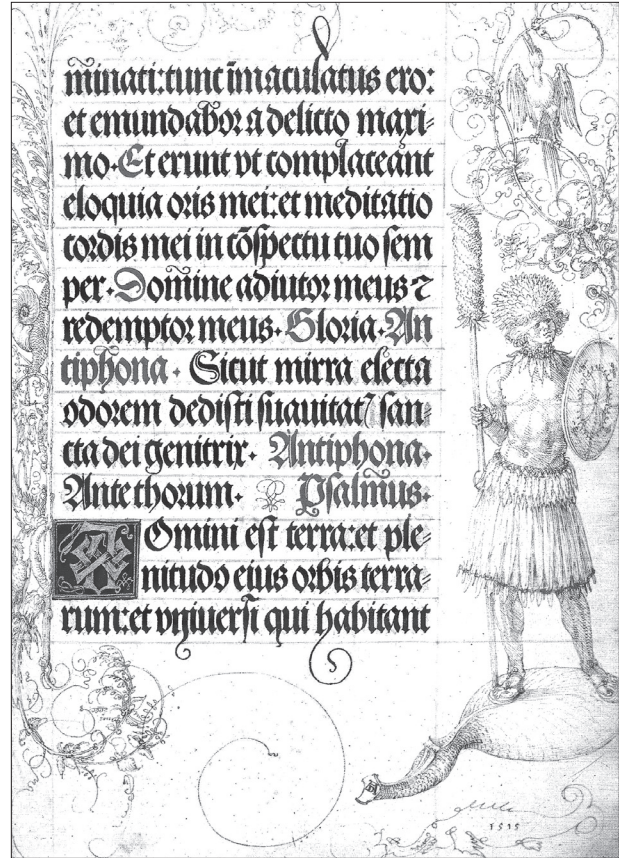 m̄inati:tunc īmaculatus ero:
et emundabor a delicto maxi⸗
mo. Et erunt vt complaceant
eloquia oris mei:et meditatio
cordis mei in cōspectu tuo sem
per. Dom̄ine adiutor meus ⁊
redemptor meus. Gloria. An
tiphona. Sicut mirra electa
odorem dedisti suauitat℩ san⸗
cta dei genitrix. Antiphona.
Ante thorum. Psalm̄us.
Omini est terra:et ple⸗
nitudo eius orbis terra⸗
rum:et vniuersi qui habitant
1515